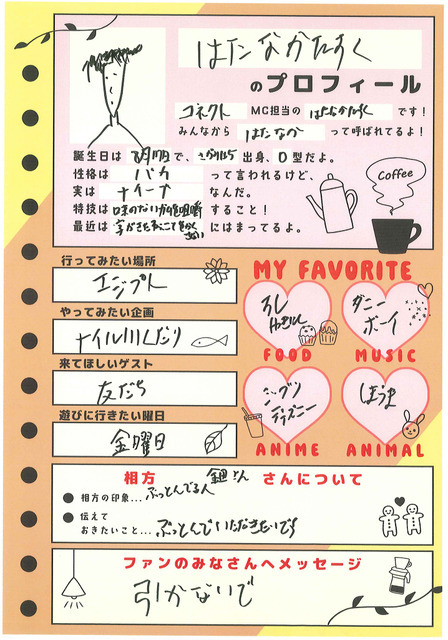 はたなかたすく
のプロフィール
コネクト MC担当の はたなかたすく です！
みんなから はたなか って呼ばれてるよ！
誕生日は で、 出身、 O 型だよ。
性格は バカ って言われるけど、
実は ナイーブ なんだ。
特技は すること！
最近は にはまってるよ。
Coffee
行ってみたい場所
エジプト
やってみたい企画
ナイル川くだり
来てほしいゲスト
友だち
遊びに行きたい曜日
金曜日
MY FAVORITE
FOOD
ダニー
ボーイ
MUSIC
ジブリ
ディズニー
ANIME
ANIMAL
相方 さんについて
相方の印象… ぶっとんでる人
伝えて
おきたいこと… ぶっとんでいただきたいです
ファンのみなさんへメッセージ
引かないで